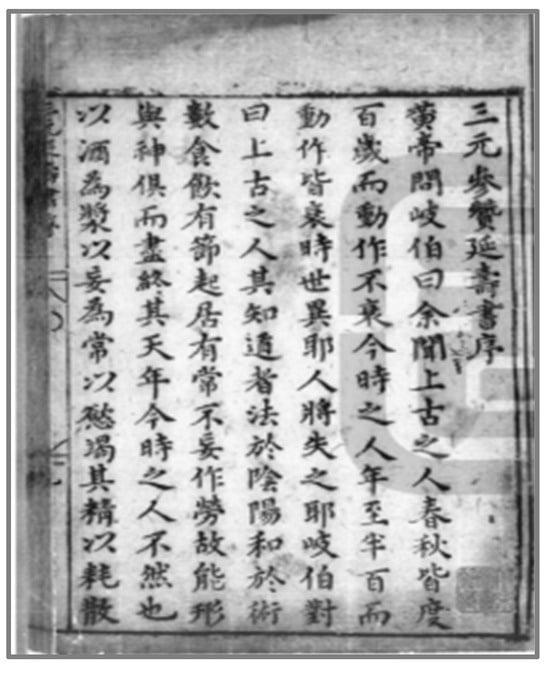 三元參贊延壽書序
黄帝問岐伯曰余聞上古之人春秋皆度
百歲而動作不衰今時之人年至半百而
動作皆衰時世異耶人將失之耶岐伯對
曰上古之人其知道者法於陰陽和於術
數食飲有節起居有常不妄作勞故能形
與神俱而盡終其天年今時之人不然也
以酒為漿以妄為常以慾竭其精以耗散